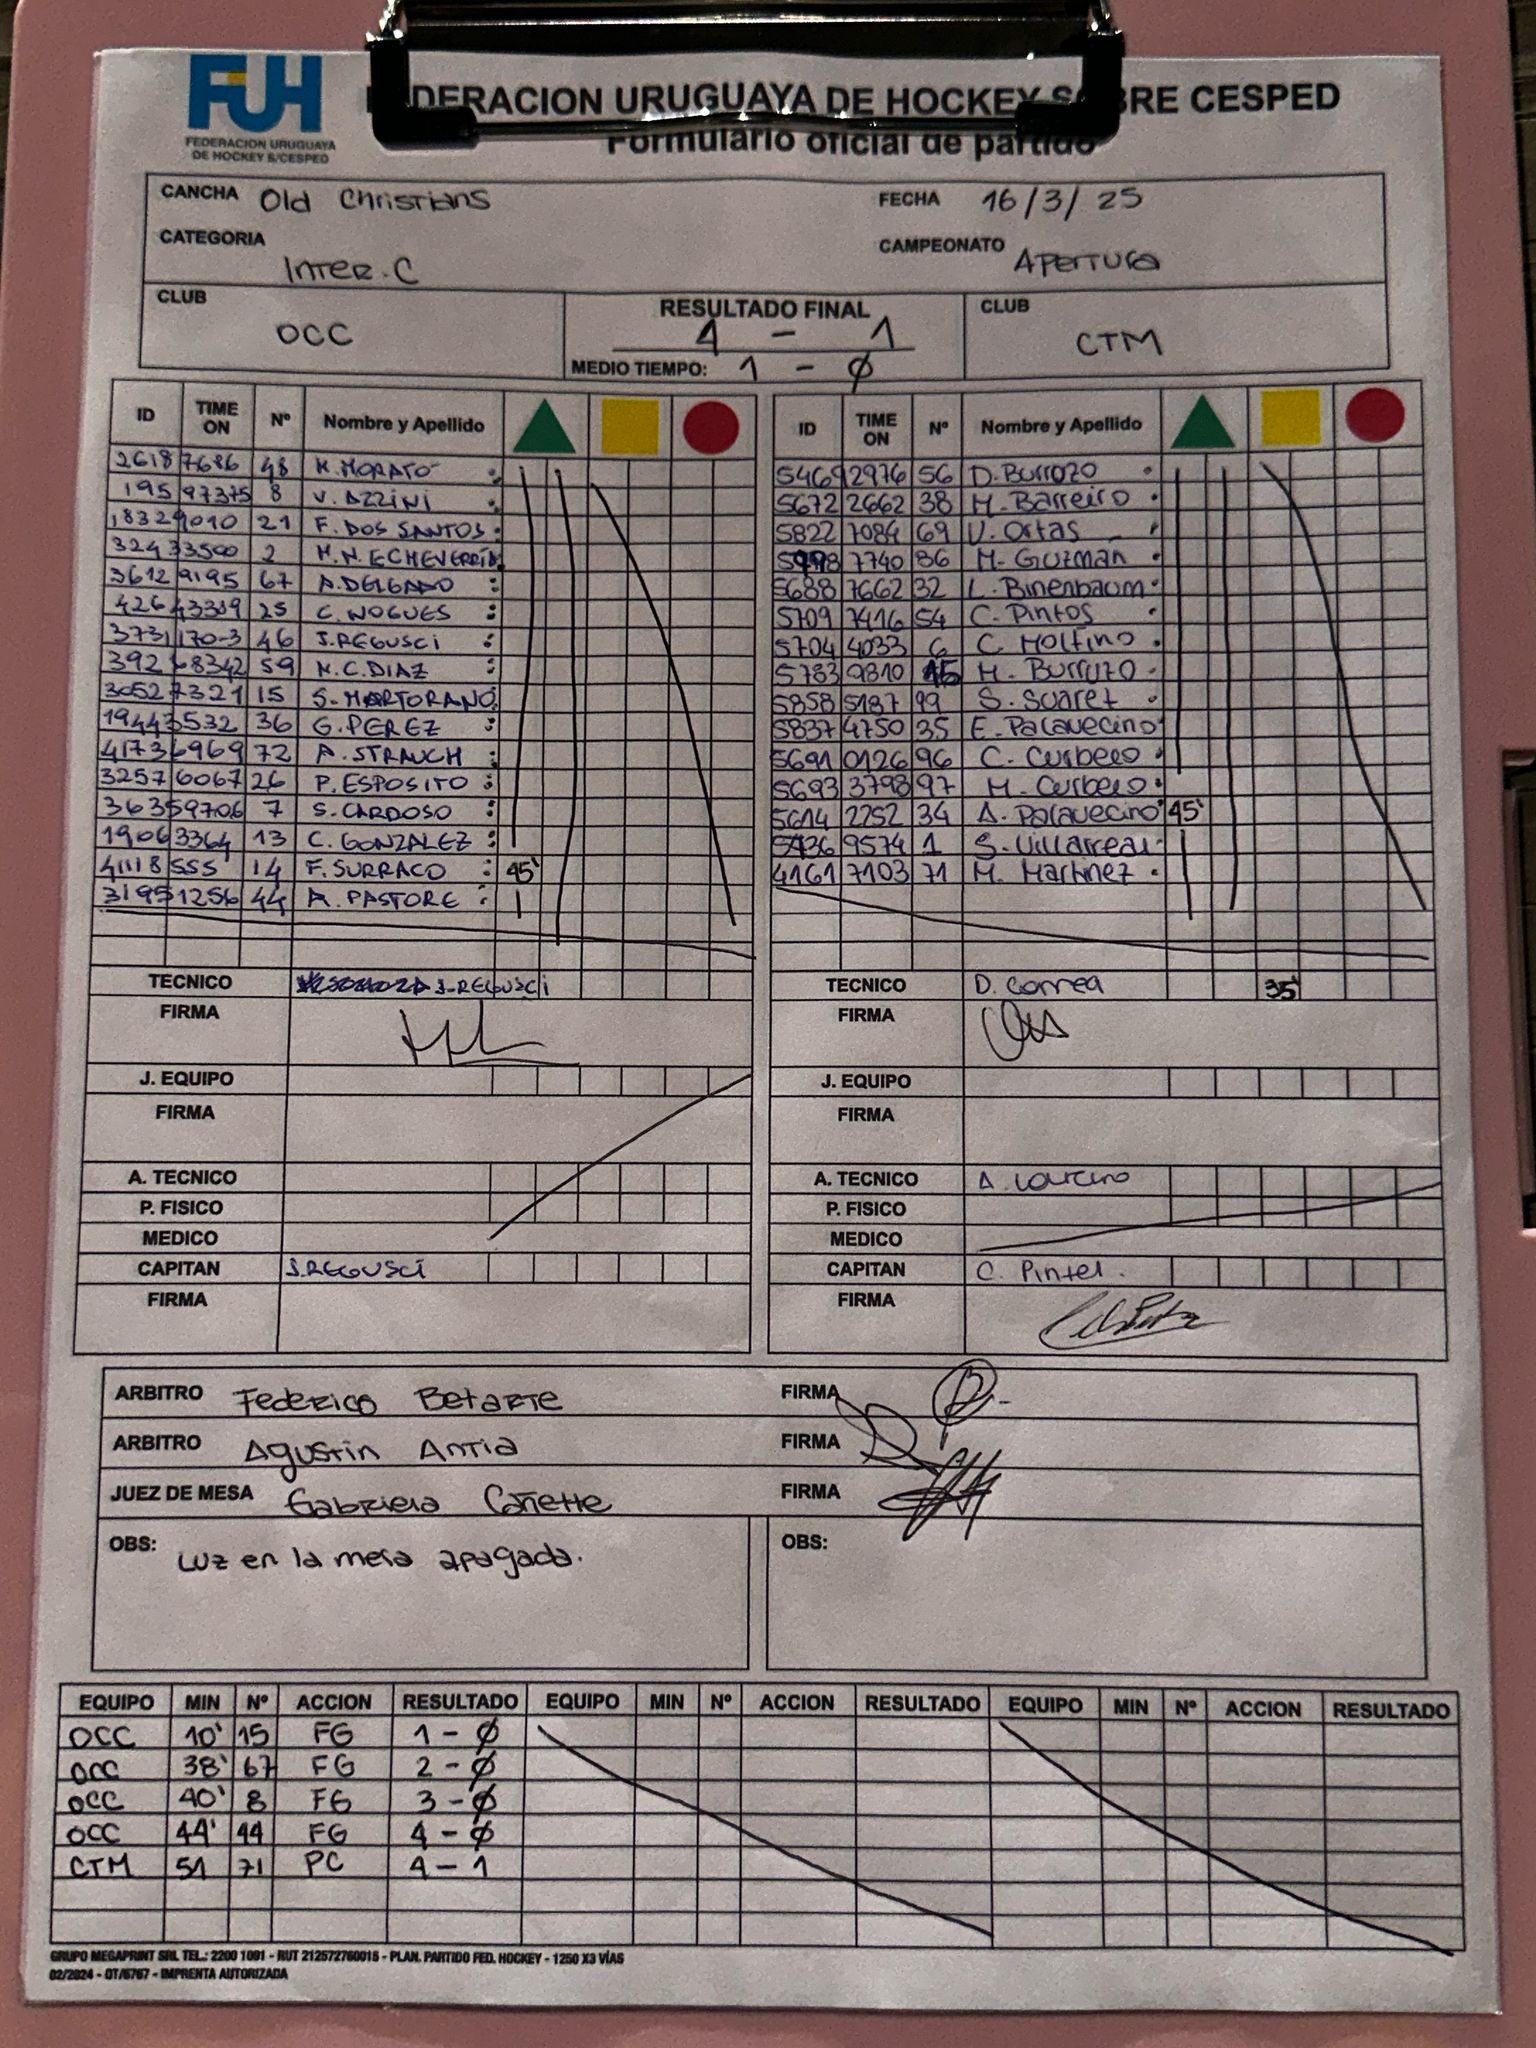 FUH
FEDERACION URUGUAYA
DE HOCKEY S/CESPED
FEDERACION URUGUAYA DE HOCKEY SOBRE CESPED
Formulario oficial de partido
CANCHA Old Christians FECHA 16/3/25
CATEGORIA Inter.C CAMPEONATO Apertura
CLUB OCC RESULTADO FINAL 4 - 1 CLUB CTM
MEDIO TIEMPO: 1 - Ø
ID TIME ON Nº Nombre y Apellido
2618 7686 48 M. MORATO
195 97375 8 V. AZZINI
18329010 21 F. DOS SANTOS
32433500 2 M.N. ECHEVERRÍA
3612 9195 67 A. DELGADO
426 43339 25 C. NOGUES
3731 170-3 46 J. REGUSCI
392 68342 59 M.C. DIAZ
30527321 15 S. MARTORANO
19443532 36 G. PEREZ
41736969 72 A. STRAUCH
32576067 26 P. ESPOSITO
36359706 7 S. CARDOSO
19063364 13 C. GONZALEZ
41118555 14 F. SURRACO 45'
31951256 44 A. PASTORE
TECNICO J. REGUSCI
FIRMA
J. EQUIPO
FIRMA
A. TECNICO
P. FISICO
MEDICO
CAPITAN J. REGUSCI
FIRMA
ID TIME ON Nº Nombre y Apellido
5469 2976 56 D. Burrozo
5672 2662 38 M. Barreiro
5822 7084 69 V. Ortas
7740 86 M. Guzman
5688 7662 32 L. Binenbaum
5709 7416 54 C. Pintos
5704 4033 6 C. Molfino
5783 9810 M. Burruzo
5858 5187 99 S. Suarez
5837 4750 35 E. Palavecino
5691 0126 96 C. Curbelo
5693 3798 97 M. Curbelo
5614 2252 34 A. Palavecino 45'
5436 9574 1 S. Villarreal
4161 7103 71 M. Martinez
TECNICO D. Correa 35'
FIRMA
J. EQUIPO
FIRMA
A. TECNICO A.
P. FISICO
MEDICO
CAPITAN C.
FIRMA
ARBITRO Federico Betarte FIRMA
ARBITRO Agustin Antia FIRMA
JUEZ DE MESA Gabriela Cañette FIRMA
OBS: Luz en la mesa apagada. OBS:
EQUIPO MIN Nº ACCION RESULTADO EQUIPO MIN Nº ACCION RESULTADO EQUIPO MIN Nº ACCION RESULTADO
OCC 10' 15 FG 1 - Ø
OCC 38' 67 FG 2 - Ø
OCC 40' 8 FG 3 - Ø
OCC 44' 44 FG 4 - Ø
CTM 51 71 PC 4 - 1
GRUPO MEGAPRINT SRL TEL.: 2200 1091 - RUT 212572760015 - PLAN. PARTIDO FED. HOCKEY - 1250 X3 VÍAS
02/2024 - OT/6767 - IMPRENTA AUTORIZADA